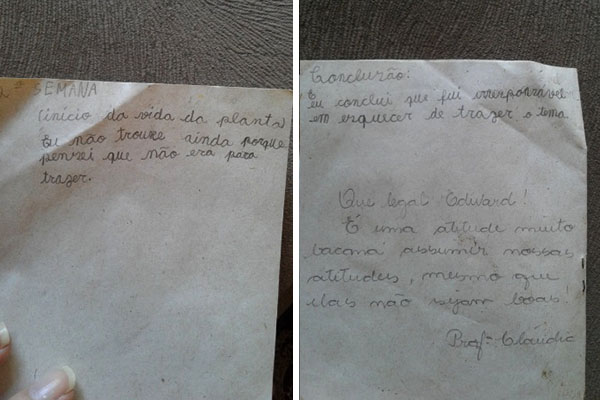 2ª SEMANA
(início da vida da planta)
Eu não trouxe ainda porque
pensei que não era para
trazer.
Concluzão:
Eu conclui que fui irresponsável
em esquecer de trazer o tema
Que legal Edward!
É uma atitude muito
bacana assumir nossas
atitudes, mesmo que
elas não sejam boas!
Profª Cláudia